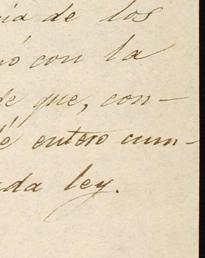 cia de los
ó con la
de que, con-
é entero cum-
ada ley.